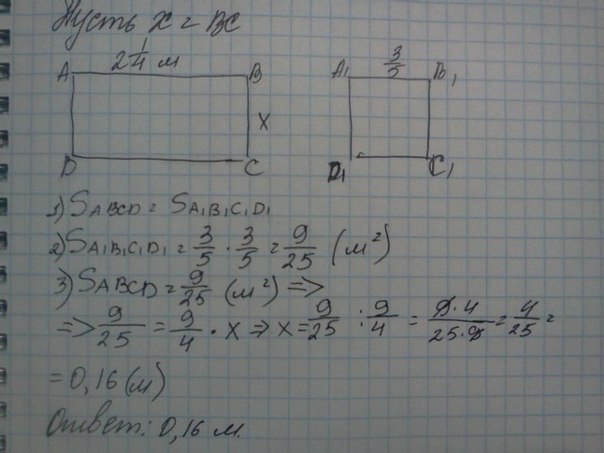 Пусть X = BC
2 1/4 м 3/5
A B A₁ B₁
X
D C D₁ C₁
1) SABCD = SA₁B₁C₁D₁
2) SA₁B₁C₁D₁ = 3/5 · 3/5 = 9/25 (м²)
3) SABCD = 9/25 (м²) =>
=> 9/25 = 9/4 · X => X = 9/25 : 9/4 = 9·4/25·9 = 4/25 =
= 0,16 (м)
Ответ: 0,16 м.